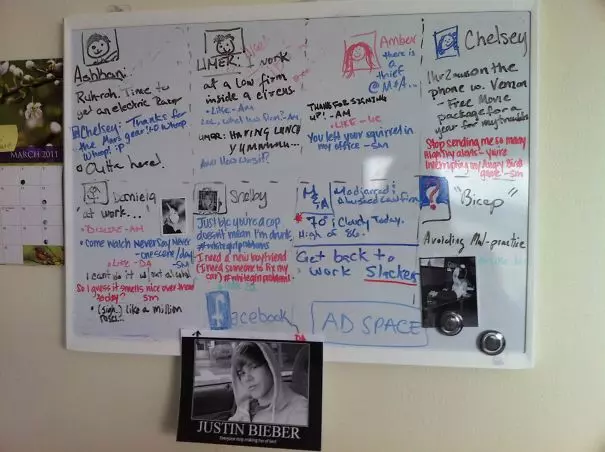 MARCH 2011
Ashbani:
Ruh-roh. Time to
get an electric Razor
@Chelsey: - Thanks for
the Mars gear! XD Whoop
Whoop! :p
Outta here!
UMER: I work
at a law firm
inside a circus.
- Like - AM
UMER: HAVING LUNCH
YUMMMMU...
And How was it?
Amber
there is
a
thief
@ M&A...
THANKS FOR SIGNING
UP! - AM
- LIKE - UC
You left your squirrel in
my office - SM
Chelsey
1 hr 2 mins on the
phone w. Verizon
- Free Movie
package for a
year for my troubles
Stop sending me so many
flightly alerts - you're
interrupting my Angry Bird
game! - SM
Daniela
"at work..."
"DISLIKE - AM
Come Watch Never Say Never
- one score/day
- SM
- LIKE - DA
So I guess it smells nice over there
today? SM
(sigh..) like a million
roses...
Shelby
Just b/c you're a cop
doesn't mean I'm drunk.
#whitegirlproblems
I need a new boyfriend
(I need someone to fix my
car) #whitegirlproblems
M&A
70° : Cloudy Today.
High of 86°
Get back to
work Slacker
"Bicep"
Avoiding Mal-practice
facebook
AD SPACE
DA
JUSTIN BIEBER